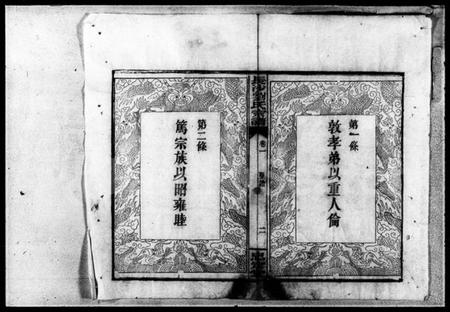 第一條
敦孝弟以重人倫
卷一
二
第二條
篤宗族以昭雍睦